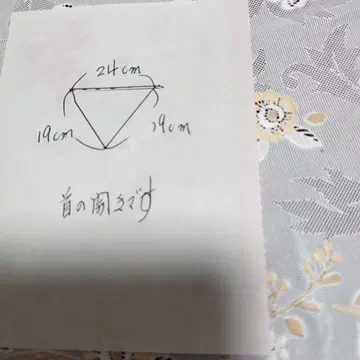 24cm
19cm 19cm
首の開きです